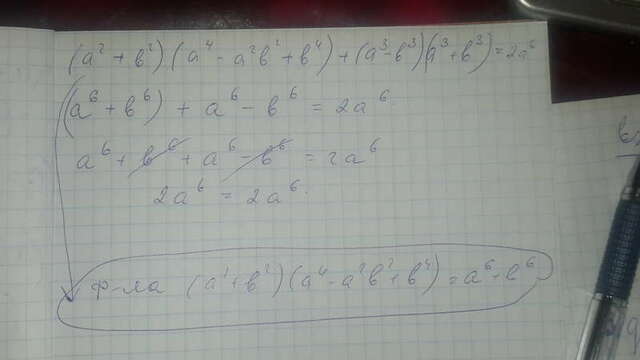 (a² + b²)(a⁴ - a²b² + b⁴) + (a³ - b³)(a³ + b³) = 2a⁶
(a⁶ + b⁶) + a⁶ - b⁶ = 2a⁶.
a⁶ + b⁶ + a⁶ - b⁶ = 2a⁶
2a⁶ = 2a⁶.
Ф-ла (a² + b²)(a⁴ - a²b² + b⁴) = a⁶ + b⁶